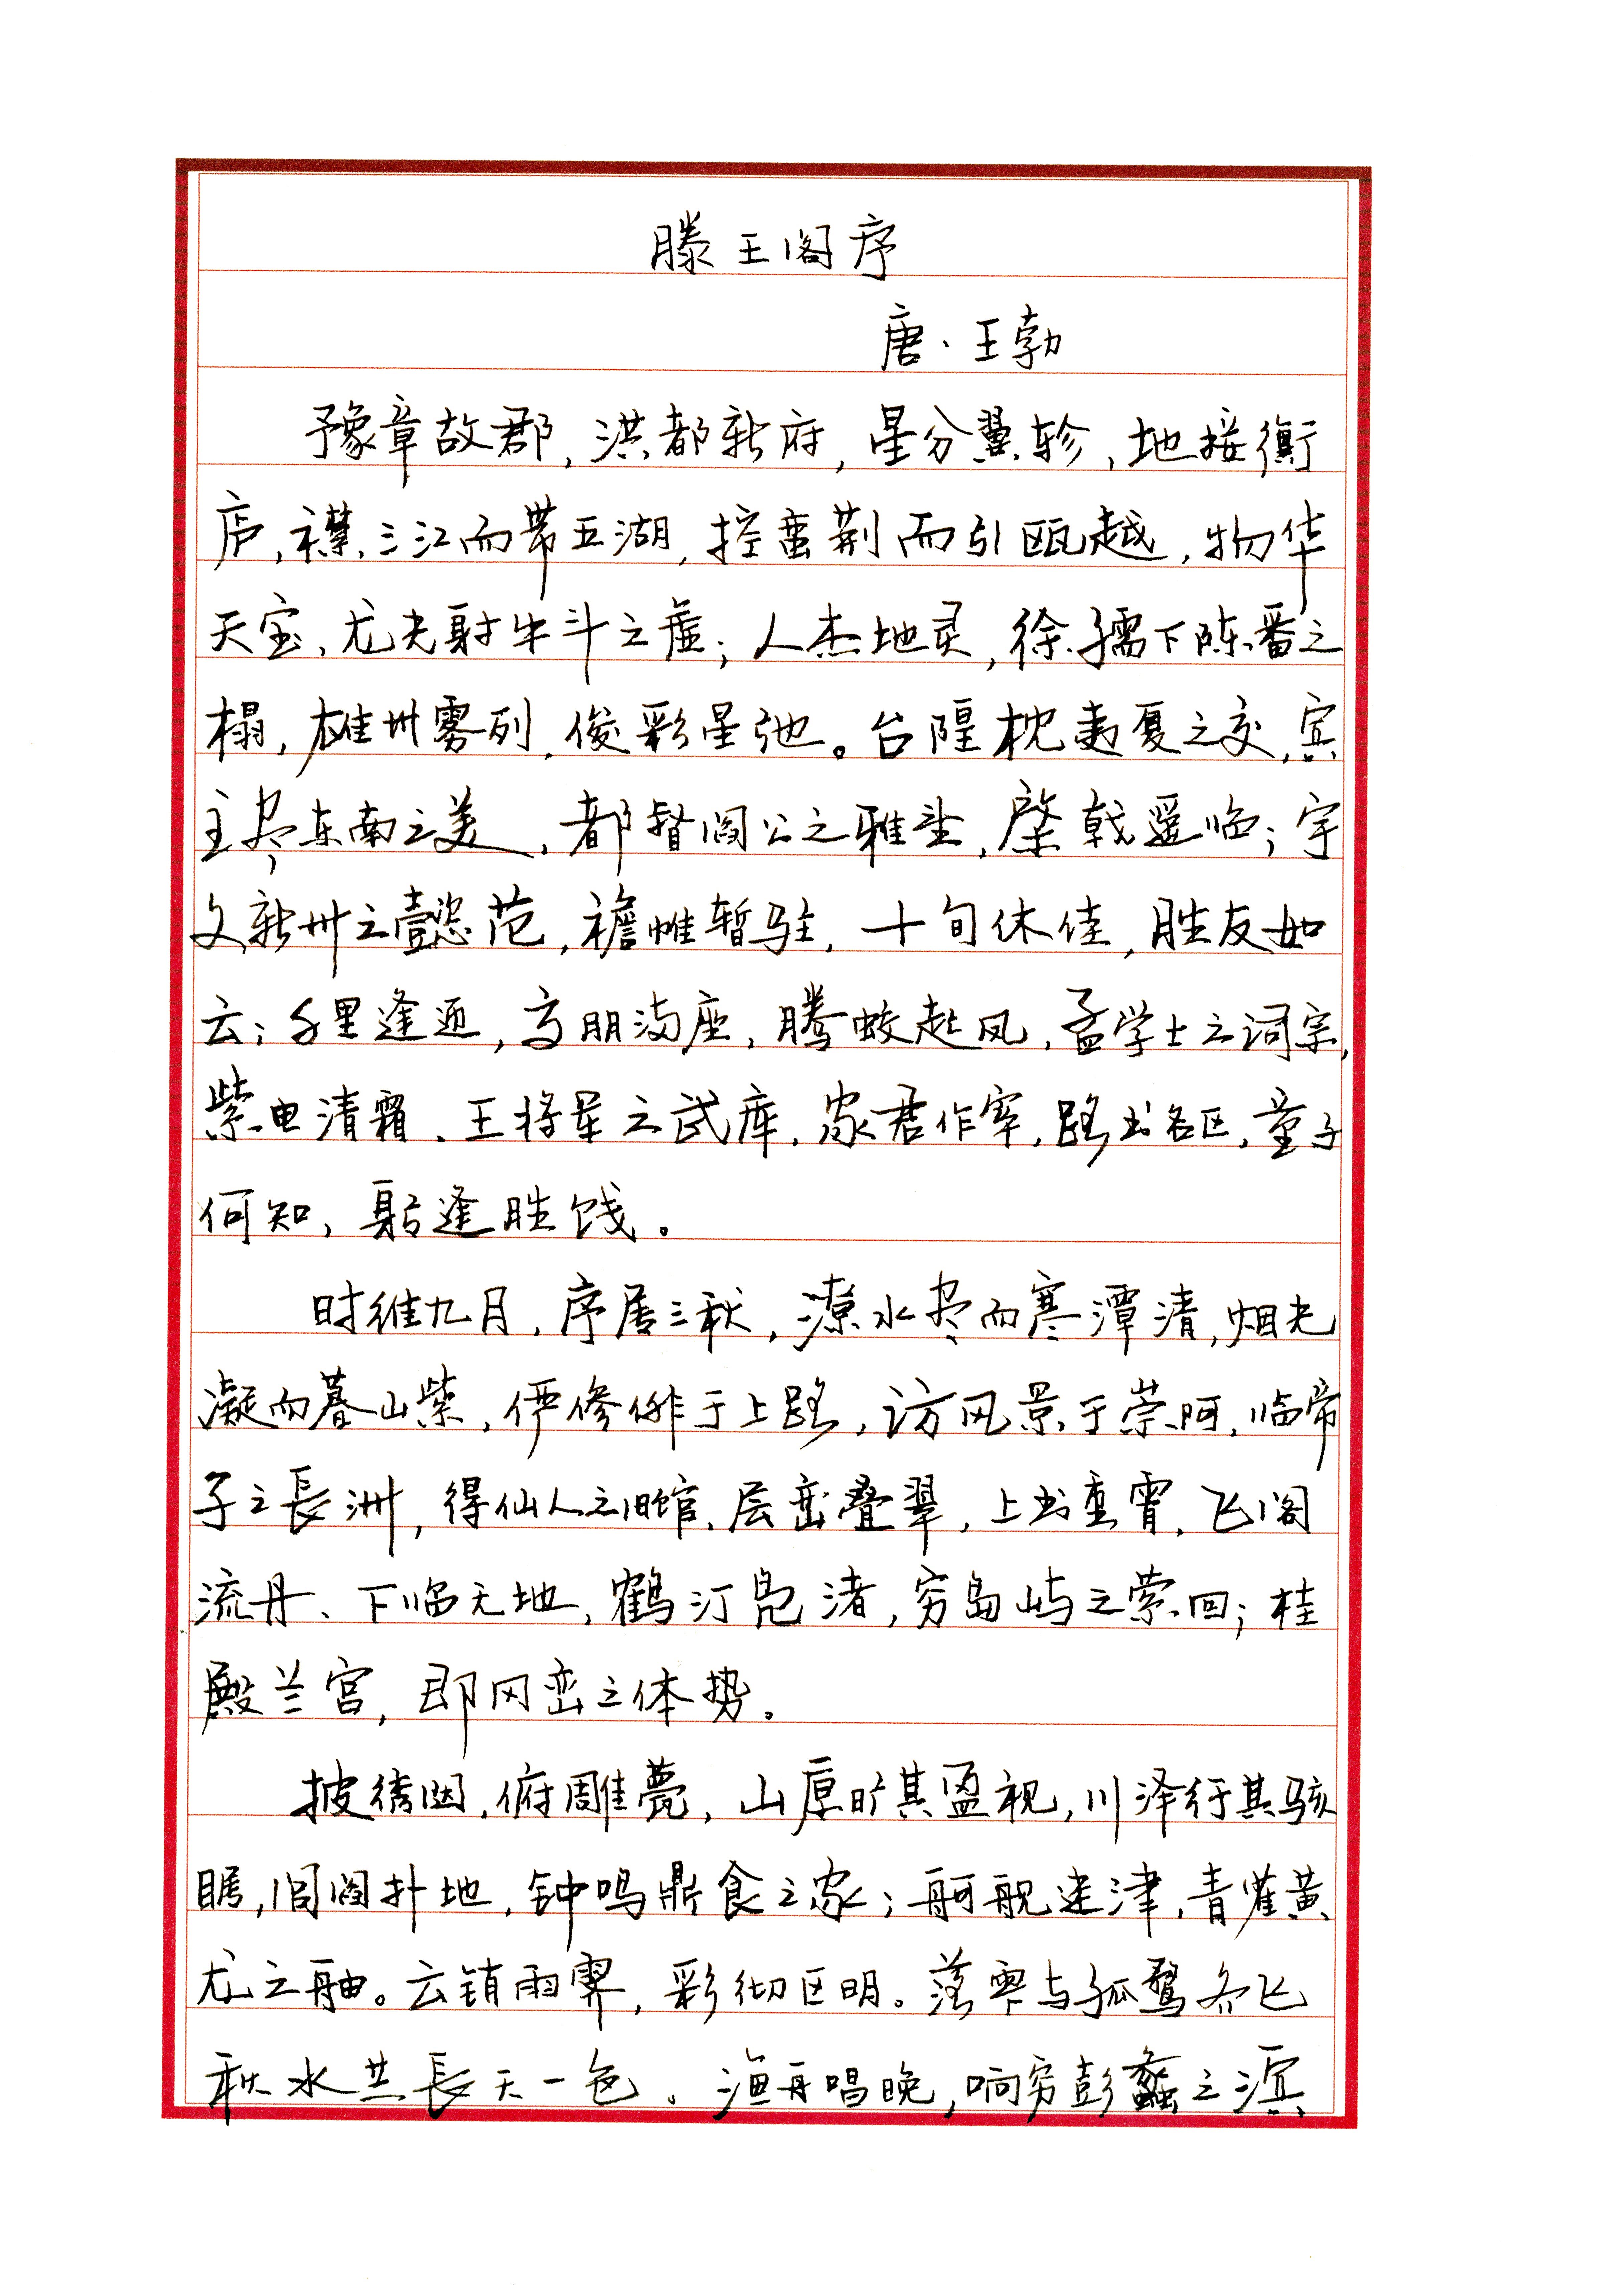 滕王阁序
唐、王勃
豫章故郡，洪都新府，星分翼轸，地接衡
庐，襟三江而带五湖，控蛮荆而引瓯越，物华
天宝，龙光射牛斗之虚；人杰地灵，徐孺下陈番之
榻，雄州雾列，俊彩星驰。台隍枕夷夏之交，宾
主尽东南之美，都督阎公之雅望，棨戟遥临；宇
文新州之懿范，襜帷暂驻，十旬休佳，胜友如
云；千里逢迎，高朋满座，腾蛟起凤，孟学士之词宗，
紫电清霜，王将军之武库，家君作宰，路出名区，童子
何知，躬逢胜饯。
时维九月，序居三秋，潦水尽而寒潭清，烟光
凝而暮山紫，俨骖騑于上路，访风景于崇阿，临帝
子之長洲，得仙人之旧馆，层峦叠翠，上出重霄，飞阁
流丹、下临无地，鹤汀凫渚，穷岛屿之萦回；桂
殿兰宫，即冈峦之体势。
披绣闼，俯雕甍，山原旷其盈视，川泽纡其骇
瞩，闾阎扑地，钟鸣鼎食之家；舸舰迷津，青雀黄
龙之舳。云销雨霁，彩彻区明。落霞与孤鹜齐飞
秋水共長天一色。渔舟唱晚，响穷彭蠡之滨